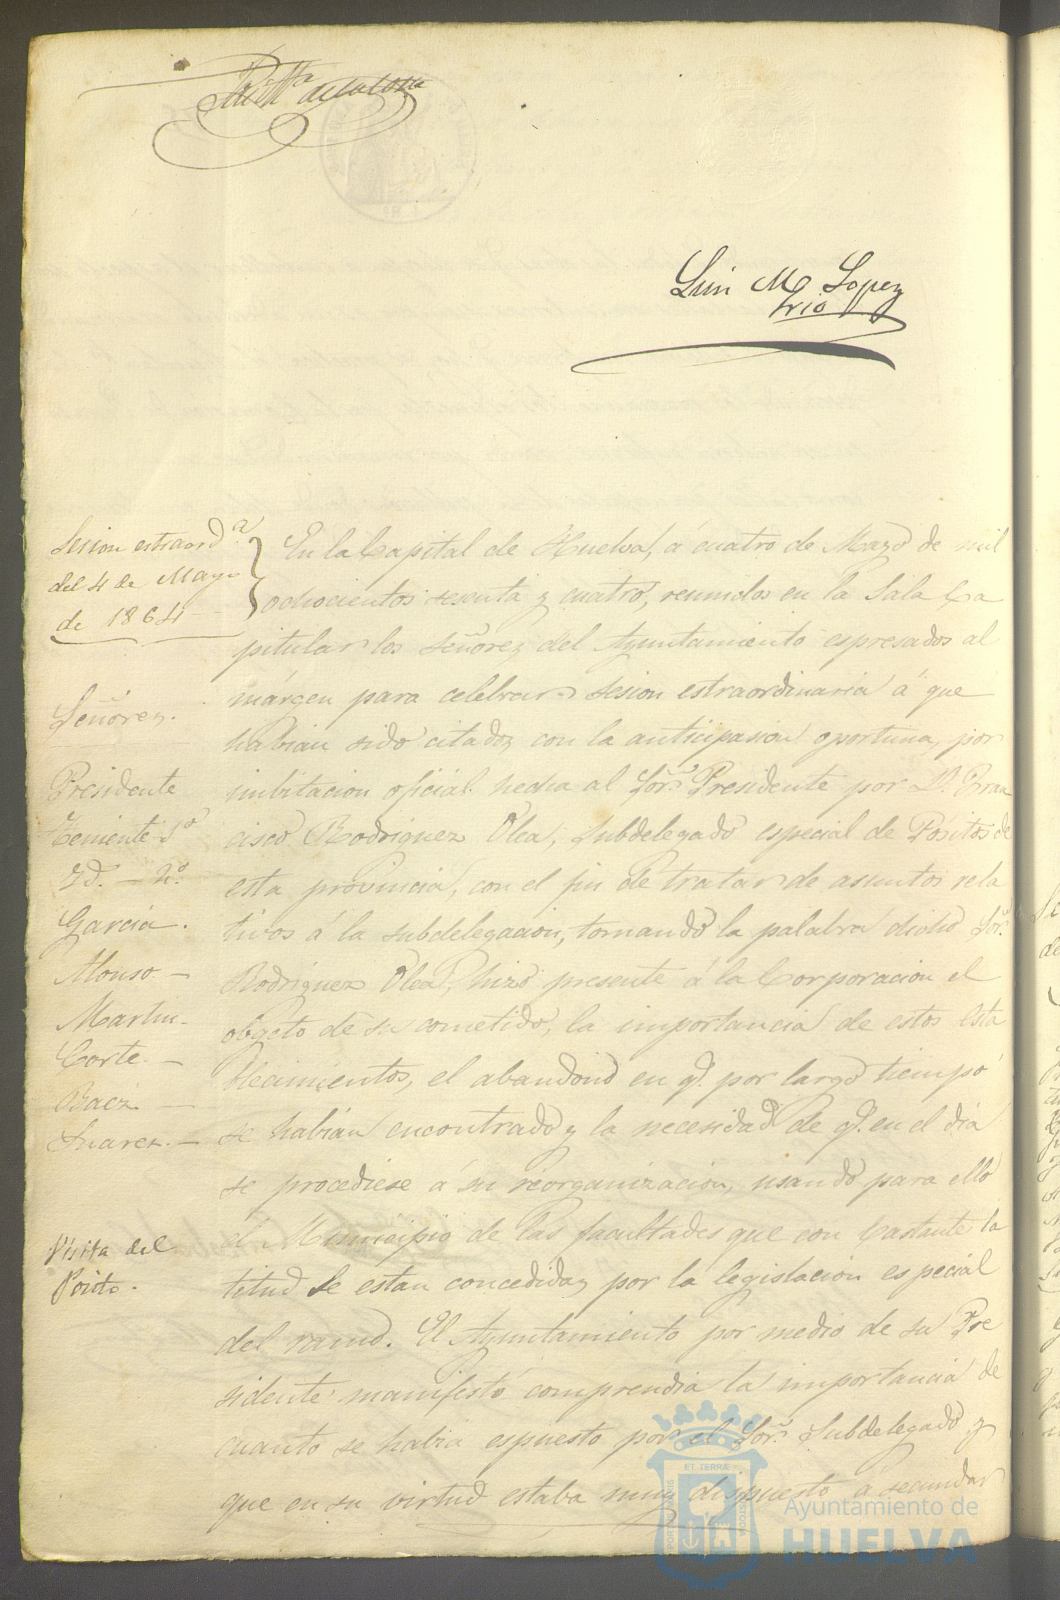 Luis Mª Lopez
srio
Sesion estraord.ª
del 4 de Mayo
de 1864
Señores.
Presidente
Teniente 1º
Yd. - 2º
García.
Alonso -
Martin -
Corte. -
Baez. -
Suarez. -
Visita del
Posito.
En la Capital de Huelva, á cuatro de Mayo de mil
ochocientos sesenta y cuatro, reunidos en la Sala Ca
pitular los Señores del Ayuntamiento espresados al
márgen para celebrar sesion estraordinaria á que
habian sido citados con la anticipasion oportuna, por
imbitacion oficial hecha al Sor. Presidente por D. Fran
cisco Rodriguez Olea, Subdelegado especial de Pósitos de
esta provincia, con el fin de tratar de asuntos rela
tivos á la subdelegacion, tomando la palabra dicho Sor.
Rodriguez Olea, hizo presente á la Corporacion el
obgeto de su cometido, la importancia de estos esta
blecimientos, el abandono en q.e por largo tiempo
se habian encontrado y la necesidad de q.e en el dia
se procediese á su reorganizacion, usando para ello
el Municipio de las facultades que con bastante la
titud le estan concedidas por la legislacion especial
del ramo. El Ayuntamiento por medio de su Pre
sidente manifestó comprendia la importancia de
cuanto se habia espuesto por el Sor. Subdelegado y
que en su virtud estaba muy dispuesto á secundar
Ayuntamiento de
HUELVA